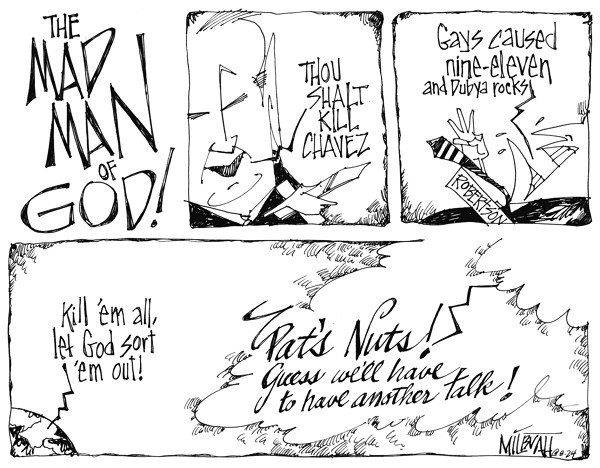 THE
MAD
MAN
OF
GOD!
THOU
SHALT
KILL
CHAVEZ
Gays caused
nine-eleven
and Dubya rocks!
ROBERTSON
Kill 'em all,
let God sort
'em out!
Pat's Nuts!
Guess we'll have
to have another talk!